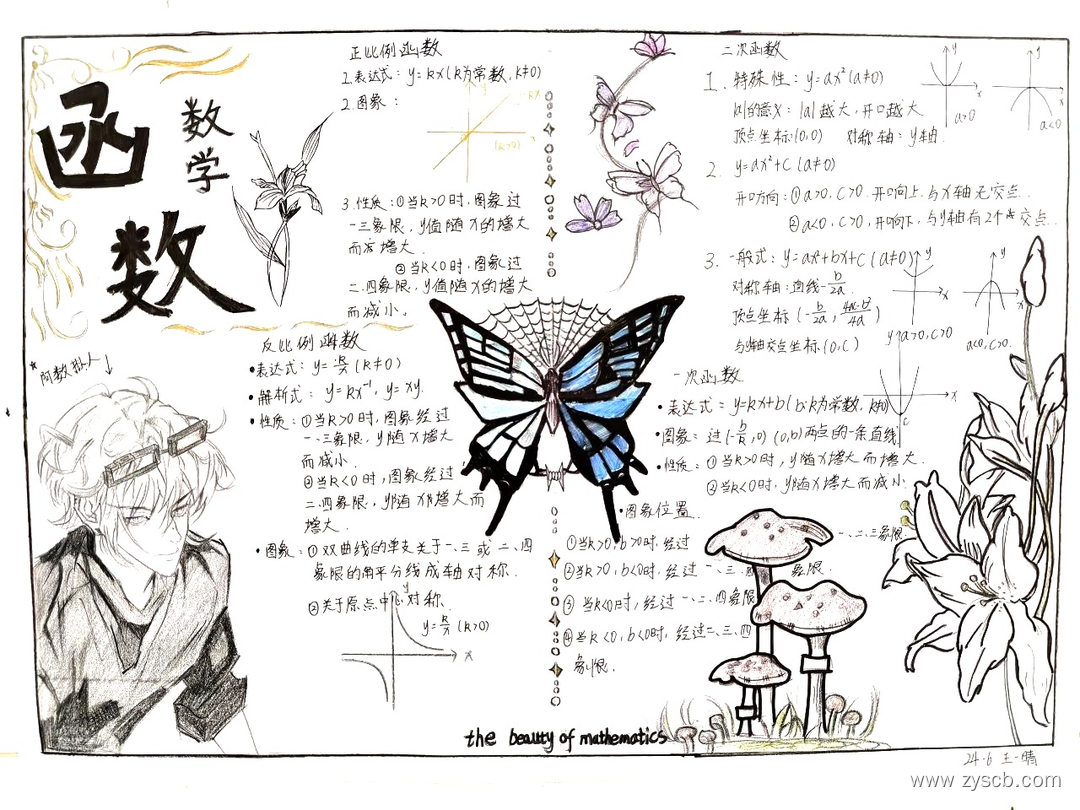 函数
数学
正比例函数
1.表达式：y=kx(k为常数，k≠0)
2.图象：
(k>0)
3.性质：①当k>0时，图象过
一三象限，y值随x的增大
而增大．
②当k<0时，图象过
二.四象限，y值随x的增大
而减小。
反比例函数
•表达式：y=k/x (k≠0)
•解析式：y=kx⁻¹，y=xy.
•性质：①当k>0时，图象经过
一、三象限，y随x增大
而减小.
②当k<0时，图象经过
二.四象限，y随x的增大而
增大.
•图象：①双曲线的单支关于一、三或二、四
象限的角平分线成轴对称.
②关于原点中心对称.
y
y=k/x (k>0)
x
二次函数
1. 特殊性：y=ax²(a≠0)
|a|的意义：|a|越大，开口越大
顶点坐标：(0,0) 对称轴：y轴.
y
x
a>0
y
x
a<0
2. y=ax²+C (a≠0)
开口方向：①a>0, C>0，开口向上，与x轴无交点..
②a<0, C>0，开口向下，与y轴有2个交点...
3. 一般式：y=ax²+bx+c (a≠0)
对称轴：直线-b/2a.
顶点坐标 (-b/2a, 4ac-b²/4a)
与y轴交点坐标.(0,C)
y
x
a>0, C>0.
y
x
a<0, C>0.
一次函数
•表达式：y=kx+b(b.k为常数，k≠0)
•图象：过(-b/k,0) (0,b)两点的一条直线
•性质：①当k>0时，y随x增大而增大.
②当k<0时，y随x增大而减小.
•图象位置.
①当k>0,b>0时.经过一、二、三象限
②当k>0，b<0时，经过一、三、象限.
③当k<0时，经过一、二、四象限
④当k<0,b<0时，经过二、三、四
象限.
the beauty of mathematics
24.6 王一晴
www.zyscb.com